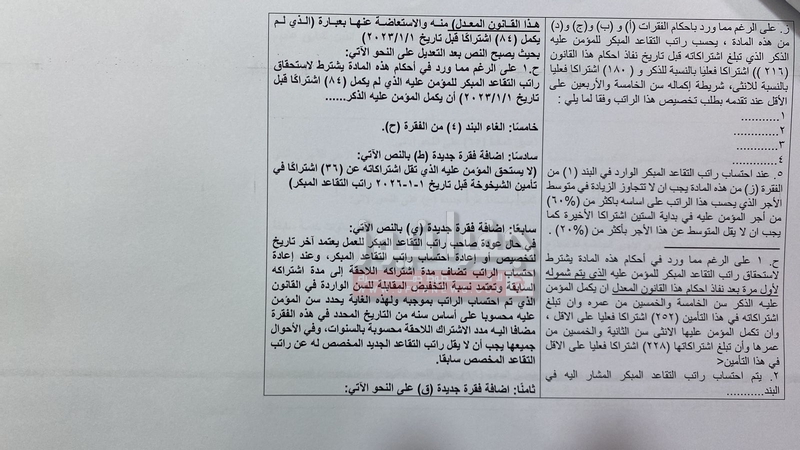 ز. على الرغم مما ورد باحكام الفقرات (أ) و (ب) و(ج) و(د)
من هذه المادة ، يحسب راتب التقاعد المبكر للمؤمن عليه
الذكر الذي تبلغ اشتراكاته قبل تاريخ نفاذ احكام هذا القانون
(٢١٦)) اشتراكا فعليا بالنسبة للذكر و (١٨٠) اشتراكا فعليا
بالنسبة للانثى، شريطة إكماله سن الخامسة والأربعين على
الأقل عند تقدمه بطلب تخصيص هذا الراتب وفقا لما يلي :
١...........
٢...........
٣...........
٤...........
٥. عند احتساب راتب التقاعد المبكر الوارد في البند (١) من
الفقرة (ز) من هذه المادة يجب ان لا تتجاوز الزيادة في متوسط
الأجر الذي يحسب هذا الراتب على اساسه بأكثر من (%٦٠)
من أجر المؤمن عليه في بداية الستين اشتراكا الأخيرة كما
يجب ان لا يقل المتوسط عن هذا الأجر بأكثر من (%٢٠) .
ح. ١ على الرغم مما ورد في أحكام هذه المادة يشترط
لاستحقاق راتب التقاعد المبكر للمؤمن عليه الذي يتم شموله
لأول مرة بعد نفاذ احكام هذا القانون المعدل ان يكمل المؤمن
عليه الذكر سن الخامسة والخمسين من عمره وان تبلغ
اشتراكاته في هذا التأمين (٢٥٢) اشتراكا فعليا على الاقل ،
وان تكمل المؤمن عليها الانثى سن الثانية والخمسين من
عمرها وأن تبلغ اشتراكاتها (٢٢٨) اشتراكا فعليا على الاقل
في هذا التأمين<
٢. يتم احتساب راتب التقاعد المبكر المشار اليه في
البند...........
هذا القانون المعدل) منه والاستعاضة عنها بعبارة (الذي لم
يكمل (٨٤) اشتراكًا قبل تاريخ ٢٠٢٣/١/١)
بحيث يصبح النص بعد التعديل على النحو الآتي:
ح.١ على الرغم مما ورد في أحكام هذه المادة يشترط لاستحقاق
راتب التقاعد المبكر للمؤمن عليه الذي لم يكمل (٨٤) اشتراكًا قبل
تاريخ ٢٠٢٣/١/١) أن يكمل المؤمن عليه الذكر......
خامسًا: الغاء البند (٤) من الفقرة (ح).
سادسًا: اضافة فقرة جديدة (ط) بالنص الآتي:
(لا يستحق المؤمن عليه الذي تقل اشتراكاته عن (٣٦) اشتراكًا في
تأمين الشيخوخة قبل تاريخ ١-١-٢٠٢٦ راتب التقاعد المبكر)
سابعًا: اضافة فقرة جديدة (ي) بالنص الآتي:
في حال عودة صاحب راتب التقاعد المبكر للعمل يعتمد آخر تاريخ
لتخصيص أو إعادة احتساب راتب التقاعد المبكر، وعند إعادة
احتساب الراتب تضاف مدة اشتراكه اللاحقة إلى مدة اشتراكه
السابقة وتعتمد نسبة التخفيض المقابلة للسن الواردة في القانون
الذي تم احتساب الراتب بموجبه ولهذه الغاية يحدد سن المؤمن
عليه محسوبا على أساس سنه من التاريخ المحدد في هذه الفقرة
مضافا اليه مدد الاشتراك اللاحقة محسوبة بالسنوات، وفي الأحوال
جميعها يجب أن لا يقل راتب التقاعد الجديد المخصص له عن راتب
التقاعد المخصص سابقًا.
ثامنًا: اضافة فقرة جديدة (ق) على النحو الآتي: